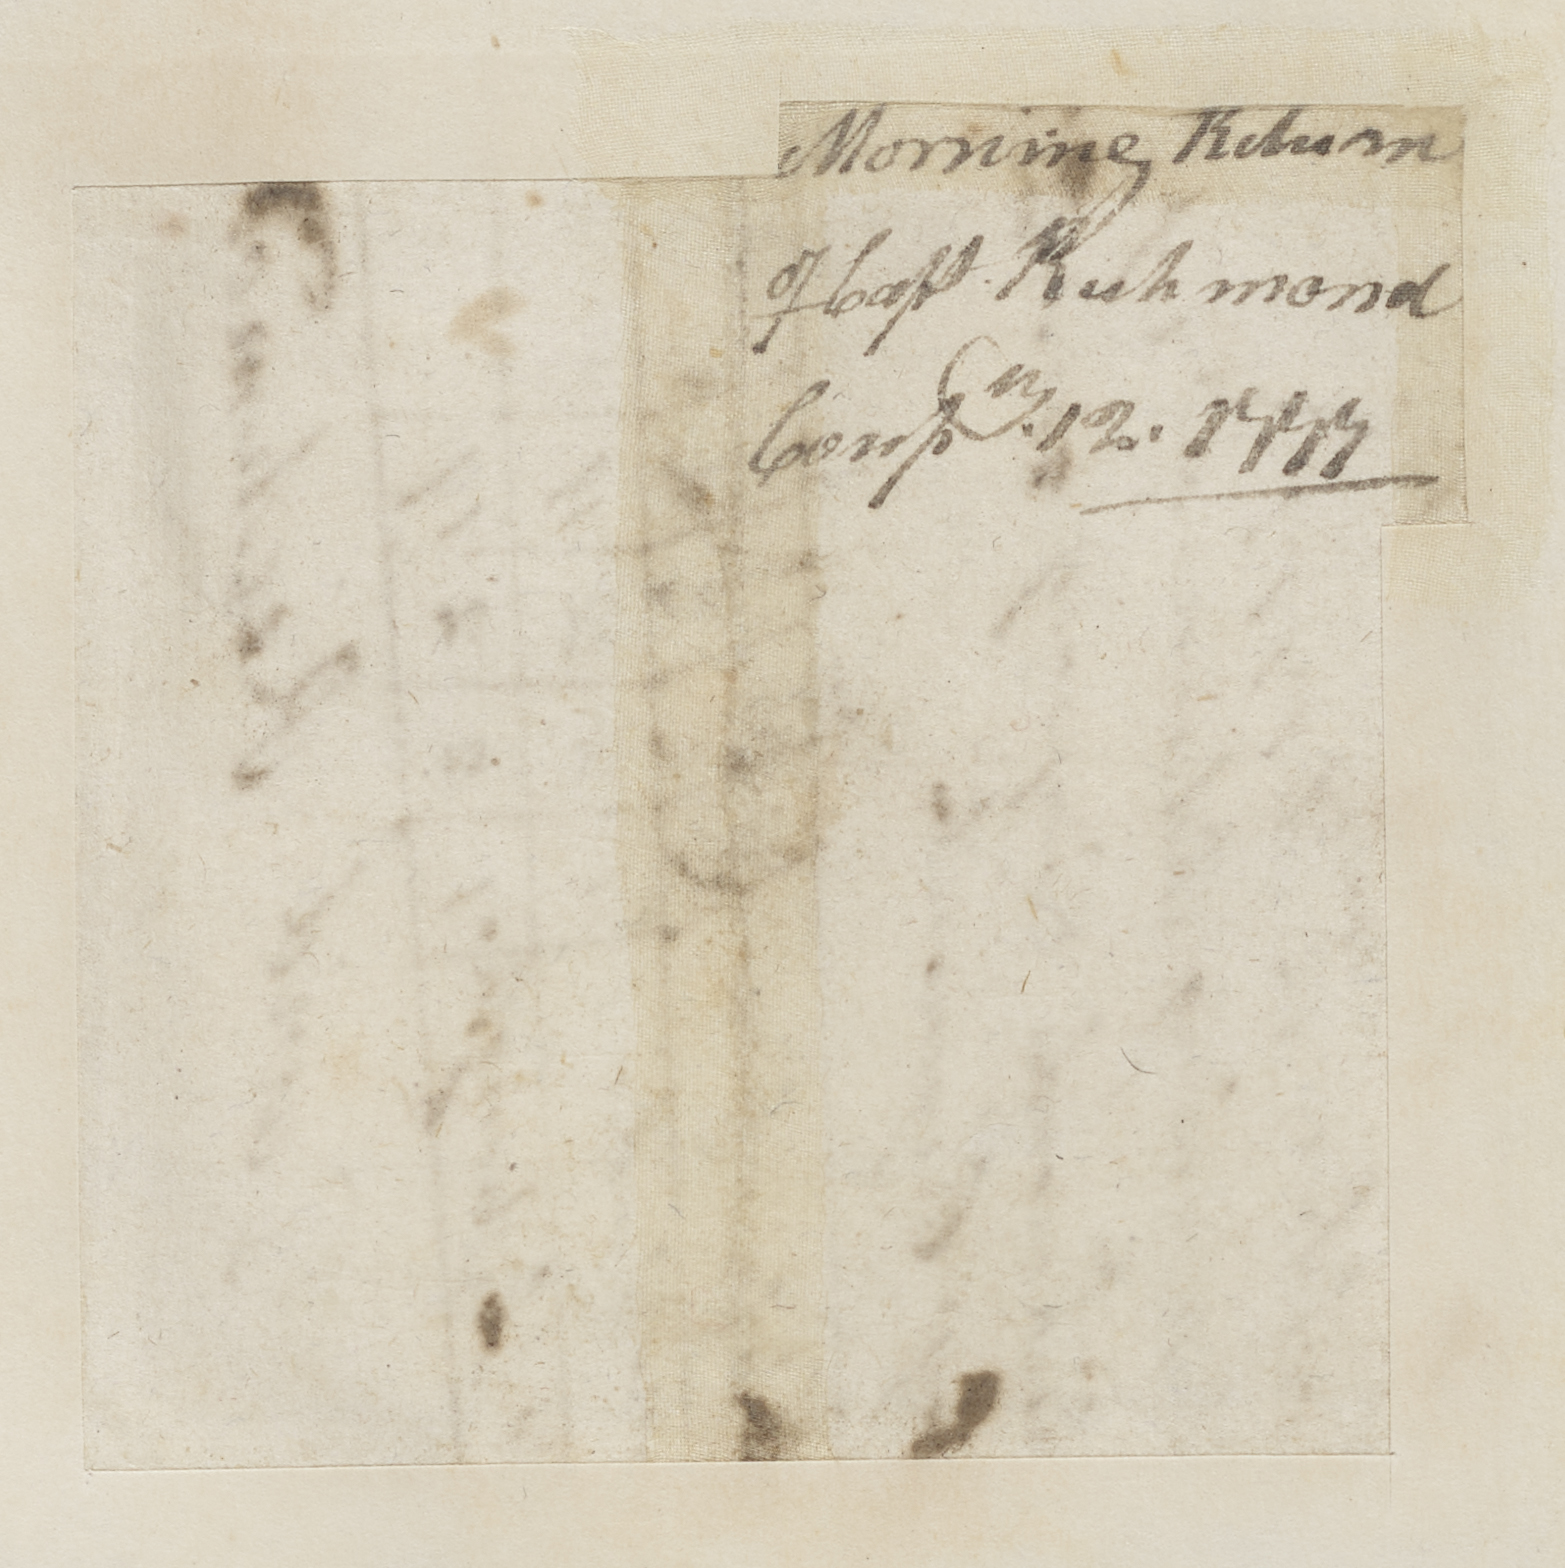 Morning Return
of Capt. Richmond
Compny. 12. 1777